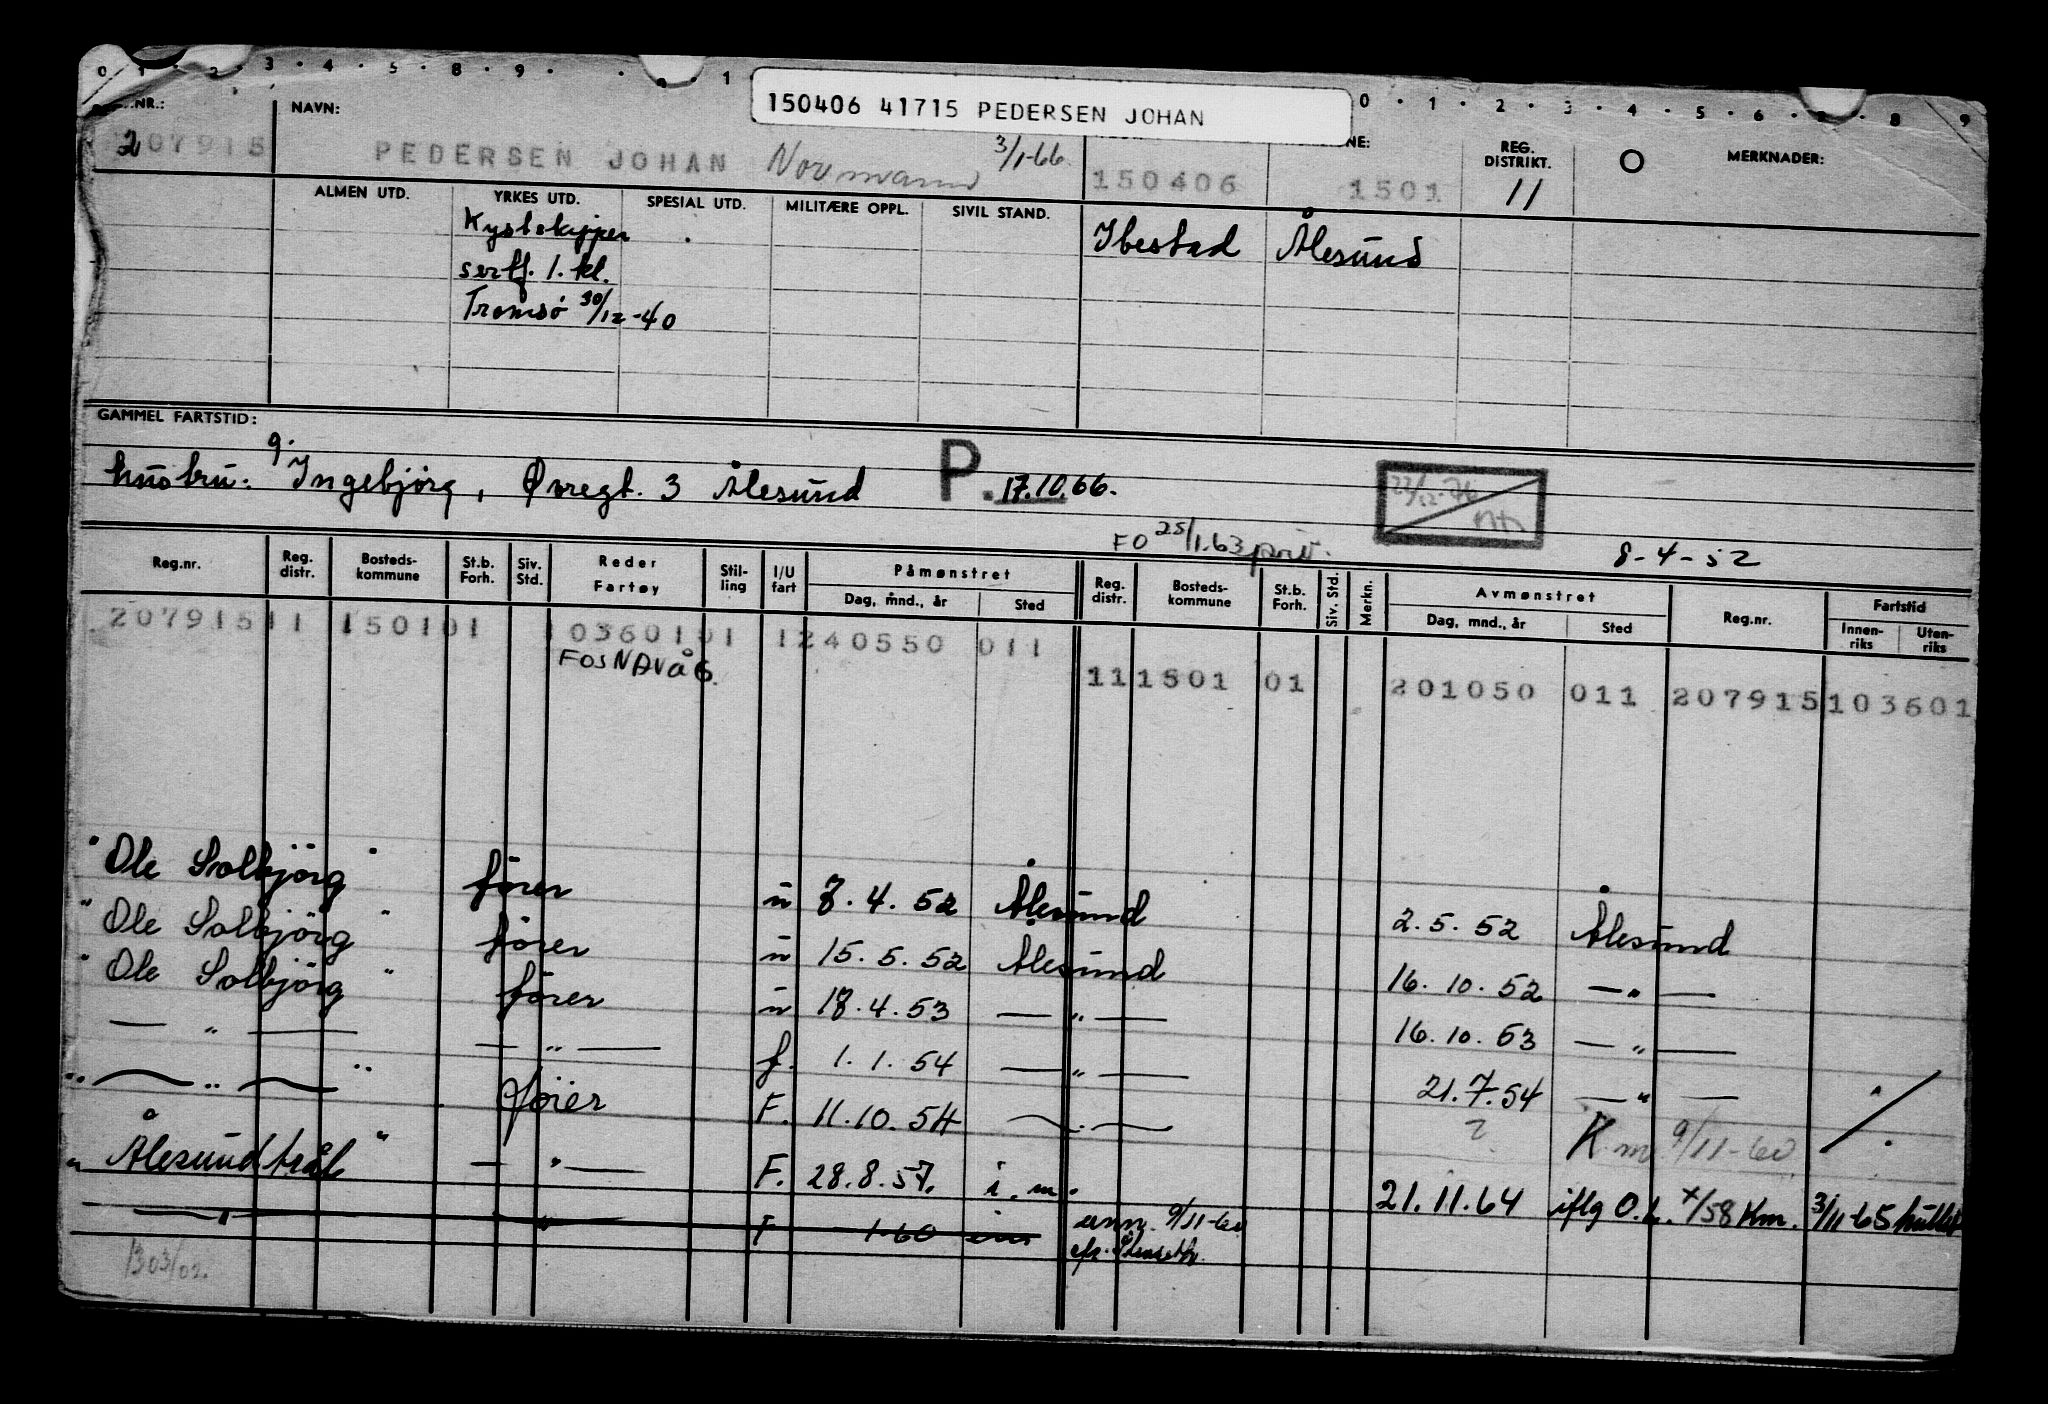 0 · 1 · 2 · 3 · 4 · 5 · 8 · 9 · · 0 · 1 0 · 1 · 2 · 3 · 4 · 5 · 6 · · 8 9
150406 41715 PEDERSEN JOHAN
NR.: NAVN: NE: REG. DISTRIKT. O MERKNADER:
207915 PEDERSEN JOHAN Normann 3/1-66 150406 1501 11
ALMEN UTD. YRKES UTD. SPESIAL UTD. MILITÆRE OPPL. SIVIL STAND.
Kystskipper Ibestad Ålesund
sertf. 1. kl.
Tromsø 30/12-40
GAMMEL FARTSTID:
g.
hustru: Ingebjørg, Øvregt. 3 Ålesund P. 17.10.66. 22/12-76
FO 25/1.63 priv. 8-4-52
Reg.nr. Reg. distr. Bosteds- kommune St.b. Forh. Siv. Std. Reder Fartøy Stil- ling I/U fart Påmønstret Dag, mnd., år Sted Reg. distr. Bosteds- kommune St.b. Forh. Siv. Std. Merkn. Avmønstret Dag, mnd., år Sted Reg.nr. Fartstid Innen- riks Uten- riks
20791511 150101 10360101 1240550 011
FOSNAVÅG. 111501 01 201050 011 207915103601
" Ole Solbjörg " förer u 8.4.52 Ålesund 2.5.52 Ålesund
" Ole Solbjörg " förer u 15.5.52 Ålesund 16.10.52 — " —
" Ole Solbjörg " förer u 18.4.53 — " — 16.10.53 — " —
— " — — " — f. 1.1.54 — " — 21.7.54 — " —
" — " — " förer F. 11.10.54 — " — ? K.m 9/11-60
" Ålesundtrål " — " — F. 28.8.57. i.m. 21.11.64 iflg O.k. 4/58 Km. 3/11-65
— " — " F 1.60 i.m. ann. 9/11-60
1303/02.